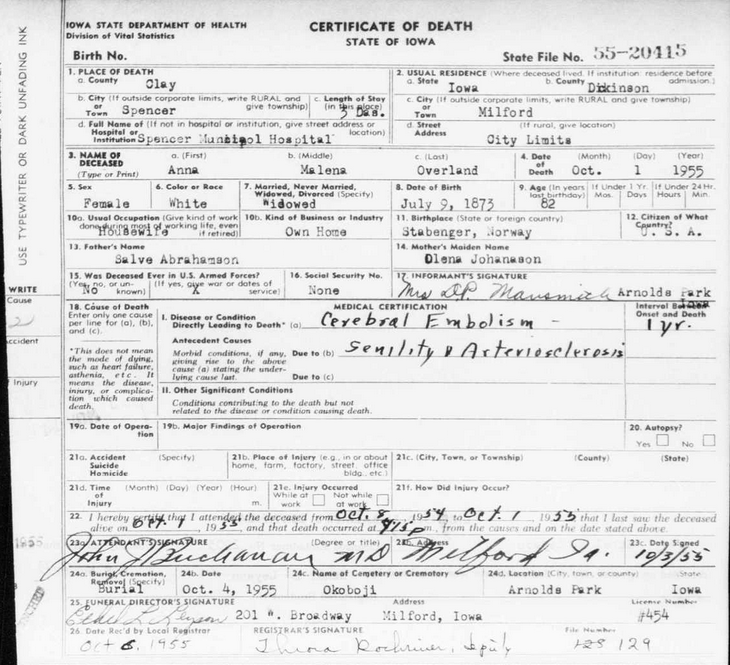 IOWA STATE DEPARTMENT OF HEALTH
Division of Vital Statistics
CERTIFICATE OF DEATH
STATE OF IOWA
Birth No.
State File No. 55-20415
USE TYPEWRITER OR DARK UNFADING INK
1. PLACE OF DEATH
a. County
Clay
2. USUAL RESIDENCE (Where deceased lived. If institution: residence before admission.)
a. State
Iowa
b. County
Dickinson
b. City (If outside corporate limits, write RURAL and give township)
or Town
Spencer
c. Length of Stay (in this place)
3 Das.
c. City (If outside corporate limits, write RURAL and give township)
or Town
Milford
d. Full Name of (If not in hospital or institution, give street address or location)
Hospital or Institution
Spencer Hospital
d. Street Address
(If rural, give location)
City Limits
3. NAME OF DECEASED
(Type or Print)
a. (First)
Anna
b. (Middle)
Malena
c. (Last)
Overland
4. Date of Death
(Month) (Day) (Year)
Oct. 1 1955
5. Sex
Female
6. Color or Race
White
7. Married, Never Married, Widowed, Divorced (Specify)
Widowed
8. Date of Birth
July 9, 1873
9. Age (In years last birthday)
82
If Under 1 Yr.
Mos. Days
If Under 24 Hr.
Hours Min.
10a. Usual Occupation (Give kind of work done during most of working life, even if retired)
Housewife
10b. Kind of Business or Industry
Own Home
11. Birthplace (State or foreign country)
Stabenger, Norway
12. Citizen of What Country?
U. S. A.
13. Father's Name
Salve Abrahamson
14. Mother's Maiden Name
Olena Johanason
15. Was Deceased Ever in U.S. Armed Forces?
(Yes, no, or unknown)
No
(If yes, give war or dates of service)
X
16. Social Security No.
None
17. INFORMANT'S SIGNATURE
Mrs D.P. Arnolds Park
Iowa
WRITE
Cause
2
Accident
Injury
18. Cause of Death
Enter only one cause per line for (a), (b), and (c).
*This does not mean the mode of dying, such as heart failure, asthenia, etc. It means the disease, injury, or complication which caused death.
MEDICAL CERTIFICATION
I. Disease or Condition
Directly Leading to Death* (a)
Cerebral Embolism -
Interval Between Onset and Death
1 yr.
Antecedent Causes
Morbid conditions, if any, giving rise to the above cause (a) stating the underlying cause last.
Due to (b)
Senility & Arteriosclerosis
Due to (c)
II. Other Significant Conditions
Conditions contributing to the death but not related to the disease or condition causing death.
19a. Date of Operation
19b. Major Findings of Operation
20. Autopsy?
Yes No
21a. Accident
Suicide
Homicide
(Specify)
21b. Place of Injury (e.g., in or about home, farm, factory, street, office bldg., etc.)
21c. (City, Town, or Township) (County) (State)
21d. Time of Injury
(Month) (Day) (Year) (Hour)
m.
21e. Injury Occurred
While at work
Not while at work
21f. How Did Injury Occur?
22. I hereby certify that I attended the deceased from Oct. 8, 1954 to Oct. 1, 1955 that I last saw the deceased
alive on Oct. 1, 1955, and that death occurred at 415 p m., from the causes and on the date stated above.
1955
23a. ATTENDANT'S SIGNATURE
(Degree or title)
John J Buchanan MD
23b. Address
Milford Ia.
23c. Date Signed
10/3/55
24a. Burial, Cremation, Removal (Specify)
Burial
24b. Date
Oct. 4, 1955
24c. Name of Cemetery or Crematory
Okoboji
24d. Location (City, town, or county)
Arnolds Park
State
Iowa
25. FUNERAL DIRECTOR'S SIGNATURE
Address
201 W. Broadway Milford, Iowa
License Number
#454
26. Date Rec'd by Local Registrar
Oct 6, 1955
REGISTRAR'S SIGNATURE
Deputy
File Number
128 129